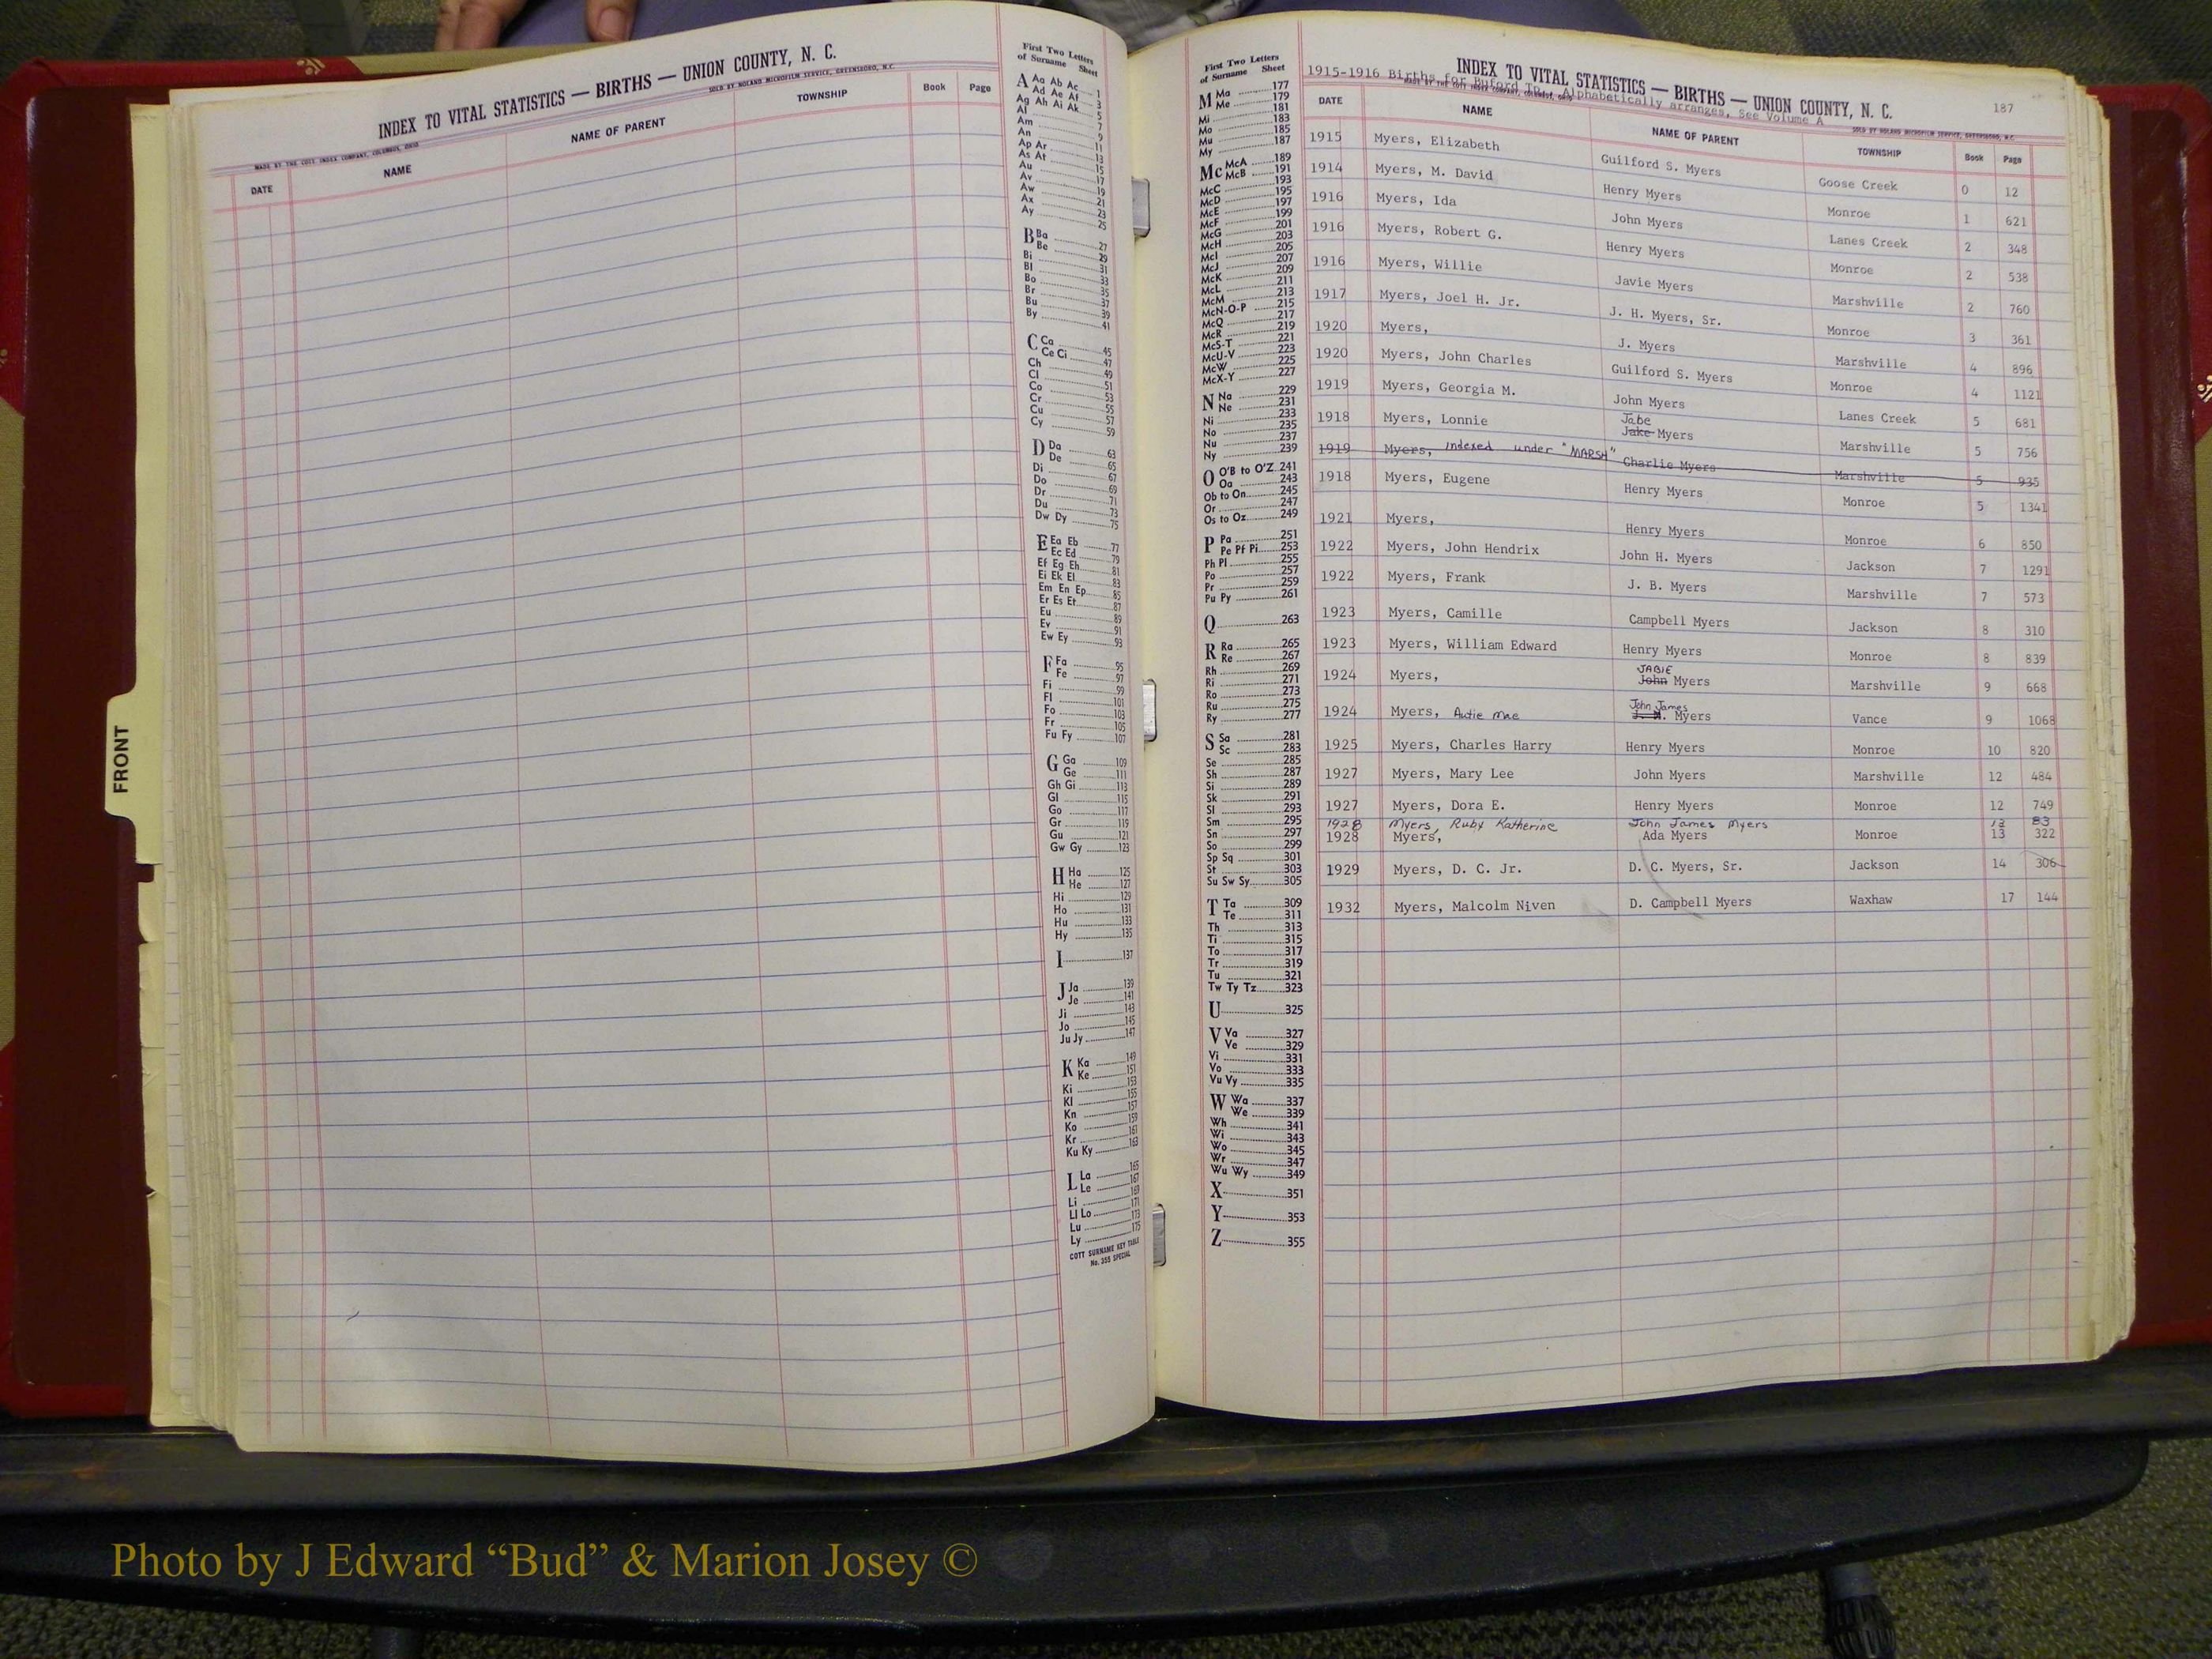 INDEX TO VITAL STATISTICS — BIRTHS — UNION COUNTY, N. C.
MADE BY THE COTT INDEX COMPANY, COLUMBUS, OHIO
SOLD BY NOLAND MICROFILM SERVICE, GREENSBORO, N.C.
DATE NAME NAME OF PARENT TOWNSHIP Book Page
First Two Letters
of Surname Sheet
A Aa Ab Ac 1
Ad Ae Af 3
Ag Ah Ai Ak 5
Al 7
Am 9
An 11
Ap Ar 13
As At 15
Au 17
Av 19
Aw 21
Ax 23
Ay 25
B Ba 27
Be 29
Bi 31
Bl 33
Bo 35
Br 37
Bu 39
By 41
C Ca 45
Ce Ci 47
Ch 49
Cl 51
Co 53
Cr 55
Cu 57
Cy 59
D Da 63
De 65
Di 67
Do 69
Dr 71
Du 73
Dw Dy 75
E Ea Eb 77
Ec Ed 79
Ef Eg Eh 81
Ei Ek El 83
Em En Ep 85
Er Es Et 87
Eu 89
Ev 91
Ew Ey 93
F Fa 95
Fe 97
Fi 99
Fl 101
Fo 103
Fr 105
Fu Fy 107
G Ga 109
Ge 111
Gh Gi 113
Gl 115
Go 117
Gr 119
Gu 121
Gw Gy 123
H Ha 125
He 127
Hi 129
Ho 131
Hu 133
Hy 135
I 137
J Ja 139
Je 141
Ji 143
Jo 145
Ju Jy 147
K Ka 149
Ke 151
Ki 153
Kl 155
Kn 157
Ko 159
Kr 161
Ku Ky 163
L La 165
Le 167
Li 169
Ll Lo 171
Lu 173
Ly 175
COTT SURNAME KEY TABLE
No. 355 SPECIAL
FRONT
First Two Letters
of Surname Sheet
M Ma 177
Me 179
Mi 181
Mo 183
Mu 185
My 187
Mc McA 189
McB 191
McC 193
McD 195
McE 197
McF 199
McG 201
McH 203
McI 205
McJ 207
McK 209
McL 211
McM 213
McN-O-P 215
McQ 217
McR 219
McS-T 221
McU-V 223
McW 225
McX-Y 227
N Na 229
Ne 231
Ni 233
No 235
Nu 237
Ny 239
O O'B to O'Z 241
Oa 243
Ob to On 245
Or 247
Os to Oz 249
P Pa 251
Pe Pf Pi 253
Ph Pl 255
Po 257
Pr 259
Pu Py 261
Q 263
R Ra 265
Re 267
Rh 269
Ri 271
Ro 273
Ru 275
Ry 277
S Sa 281
Sc 283
Se 285
Sh 287
Si 289
Sk 291
Sl 293
Sm 295
Sn 297
So 299
Sp Sq 301
St 303
Su Sw Sy 305
T Ta 309
Te 311
Th 313
Ti 315
To 317
Tr 319
Tu 321
Tw Ty Tz 323
U 325
V Va 327
Ve 329
Vi 331
Vo 333
Vu Vy 335
W Wa 337
We 339
Wh 341
Wi 343
Wo 345
Wr 347
Wu Wy 349
X 351
Y 353
Z 355
INDEX TO VITAL STATISTICS — BIRTHS — UNION COUNTY, N. C. 187
1915-1916 Births for Buford Tp., Alphabetically arranges, See Volume A
MADE BY THE COTT INDEX COMPANY, COLUMBUS, OHIO
SOLD BY NOLAND MICROFILM SERVICE, GREENSBORO, N.C.
DATE NAME NAME OF PARENT TOWNSHIP Book Page
1915 Myers, Elizabeth Guilford S. Myers Goose Creek 0 12
1914 Myers, M. David Henry Myers Monroe 1 621
1916 Myers, Ida John Myers Lanes Creek 2 348
1916 Myers, Robert G. Henry Myers Monroe 2 538
1916 Myers, Willie Javie Myers Marshville 2 760
1917 Myers, Joel H. Jr. J. H. Myers, Sr. Monroe 3 361
1920 Myers, J. Myers Marshville 4 896
1920 Myers, John Charles Guilford S. Myers Monroe 4 1121
1919 Myers, Georgia M. John Myers Lanes Creek 5 681
1918 Myers, Lonnie Jabe Jake Myers Marshville 5 756
1919 Myers, indexed under "MARSH" Charlie Myers Marshville 5 935
1918 Myers, Eugene Henry Myers Monroe 5 1341
1921 Myers, Henry Myers Monroe 6 850
1922 Myers, John Hendrix John H. Myers Jackson 7 1291
1922 Myers, Frank J. B. Myers Marshville 7 573
1923 Myers, Camille Campbell Myers Jackson 8 310
1923 Myers, William Edward Henry Myers Monroe 8 839
1924 Myers, JABIE John Myers Marshville 9 668
1924 Myers, Autie Mae John James Myers Vance 9 1068
1925 Myers, Charles Harry Henry Myers Monroe 10 820
1927 Myers, Mary Lee John Myers Marshville 12 484
1927 Myers, Dora E. Henry Myers Monroe 12 749
1928 Myers, Ruby Katherine John James Myers 13 83
1928 Myers, Ada Myers Monroe 13 322
1929 Myers, D. C. Jr. D. C. Myers, Sr. Jackson 14 306
1932 Myers, Malcolm Niven D. Campbell Myers Waxhaw 17 144
Photo by J Edward “Bud” & Marion Josey ©